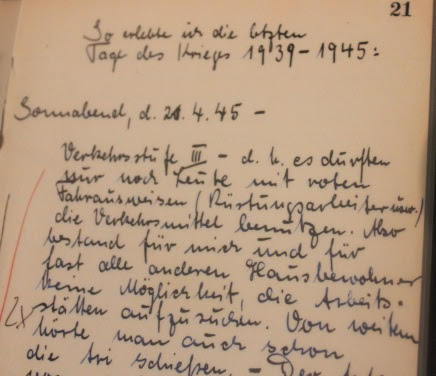 21
So erlebte ich die letzten
Tage des Krieges 1939-1945:
Sonnabend, d. 21.4.45 -
Verkehrsstufe III - d. h. es durften
nur noch Leute mit roten
Fahrausweisen (Rüstungsarbeiter usw.)
die Verkehrsmittel benutzen. Also
bestand für mich und für
fast alle anderen Hausbewohner
keine Möglichkeit, die Arbeits-
stätten aufzusuchen. Von weitem
2x
hörte man auch schon
die Ari schießen. - Der